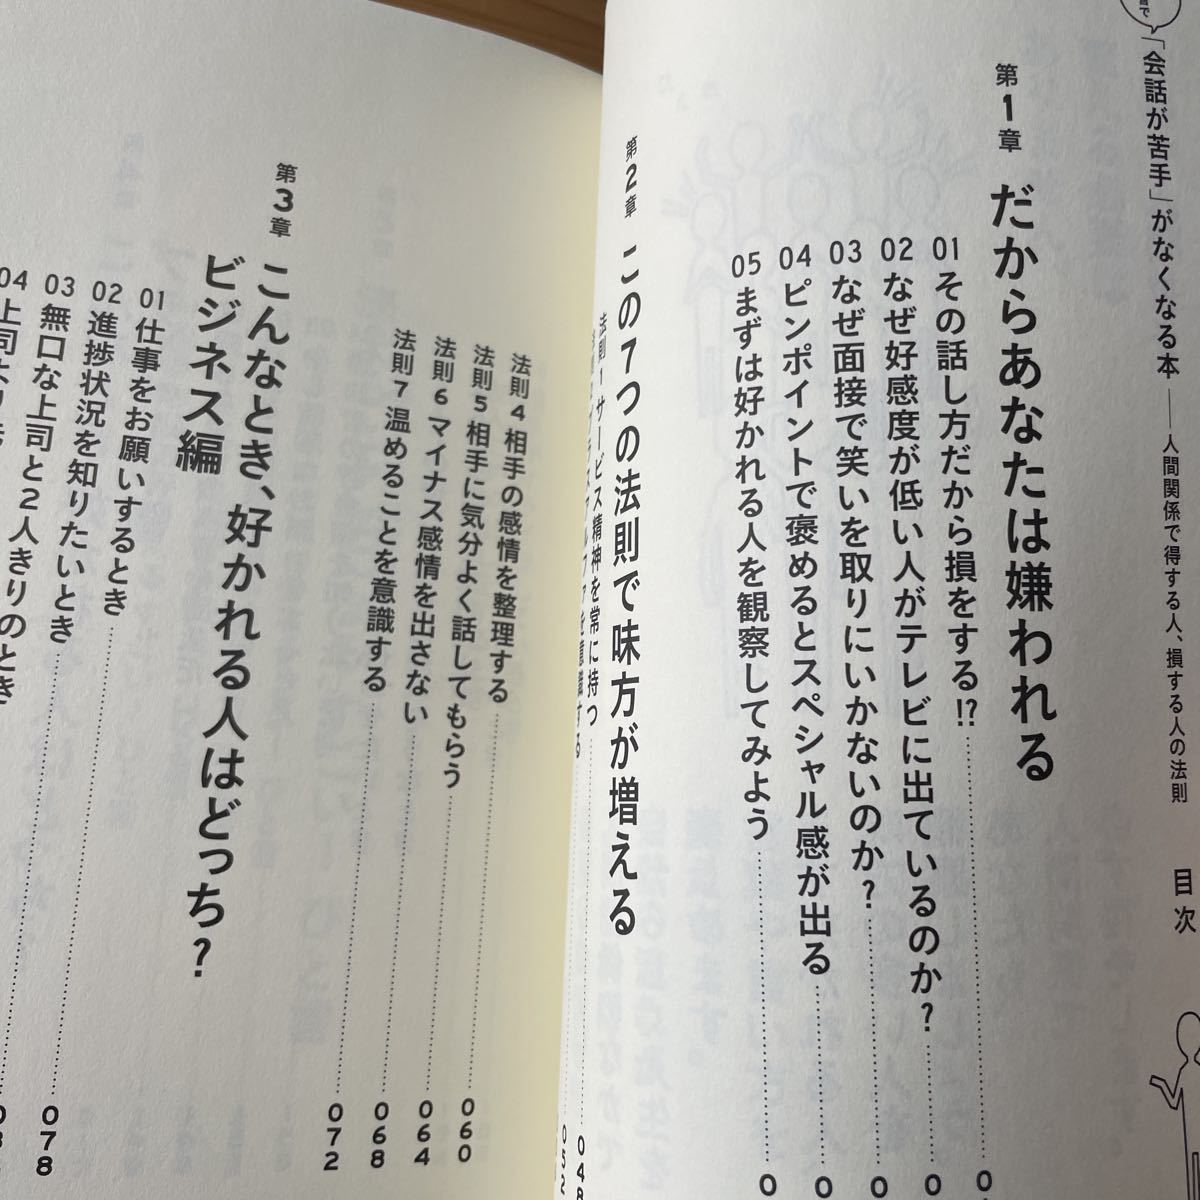 「会話が苦手」がなくなる本――人間関係で得する人、損する人の法則
目次
第1章 だからあなたは嫌われる
01 その話し方だから損をする!?
02 なぜ好感度が低い人がテレビに出ているのか?
03 なぜ面接で笑いを取りにいかないのか?
04 ピンポイントで褒めるとスペシャル感が出る
05 まずは好かれる人を観察してみよう
第2章 この7つの法則で味方が増える
法則1 サービス精神を常に持つ 048
を意識する 052
法則4 相手の感情を整理する 060
法則5 相手に気分よく話してもらう 064
法則6 マイナス感情を出さない 068
法則7 温めることを意識する 072
第3章 こんなとき、好かれる人はどっち?
ビジネス編
01 仕事をお願いするとき 078
02 進捗状況を知りたいとき
03 無口な上司と2人きりのとき
04 上司より